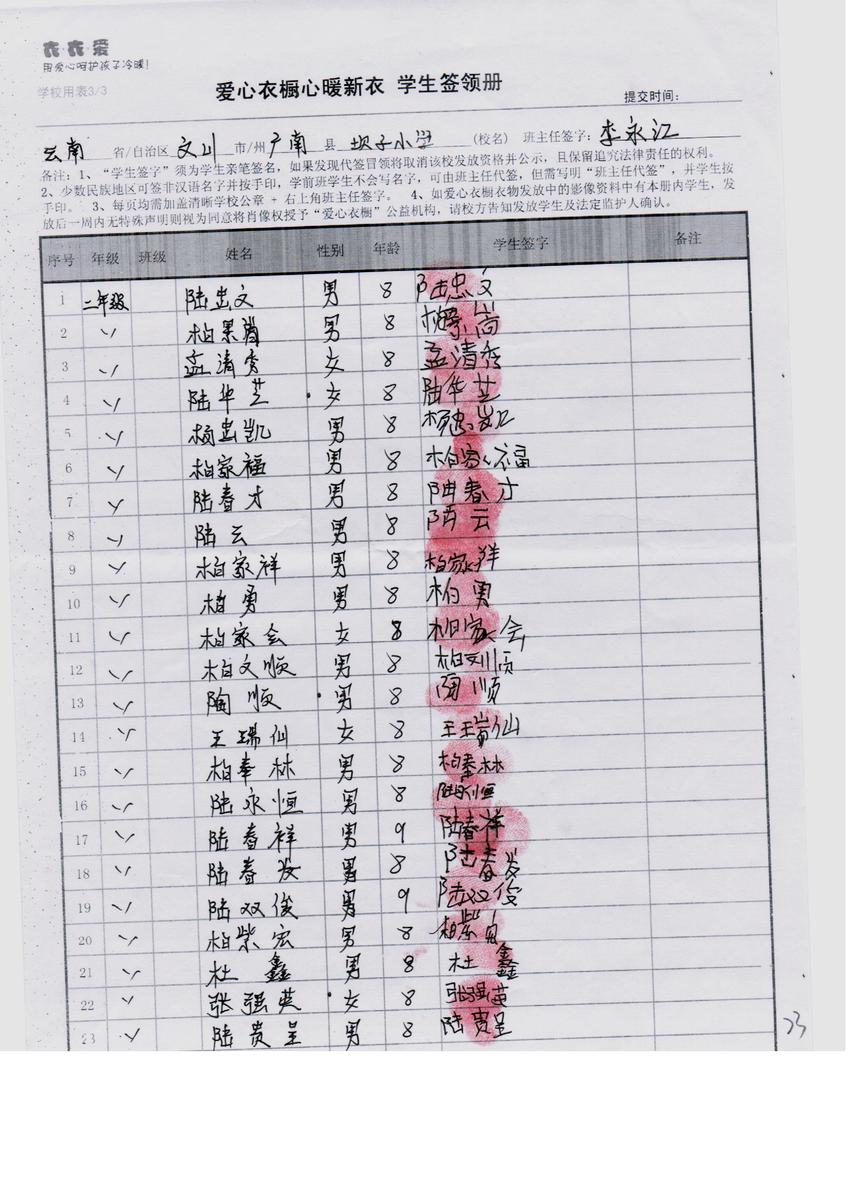 衣衣爱
用爱心呵护孩子冷暖!
学校用表3/3
爱心衣橱心暖新衣 学生签领册
提交时间:
云南 省/自治区 文山 市/州 广南 县 坝子小学 (校名) 班主任签字: 李永江
备注: 1、“学生签字”须为学生亲笔签名,如果发现代签冒领将取消该校发放资格并公示,且保留追究法律责任的权利。
2、少数民族地区可签非汉语名字并按手印,学前班学生不会写名字,可由班主任代签,但需写明“班主任代签”,并学生按
手印。 3、每页均需加盖清晰学校公章 + 右上角班主任签字。 4、如爱心衣橱衣物发放中的影像资料中有本册内学生,发
放后一周内无特殊声明则视为同意将肖像权授予“爱心衣橱”公益机构,请校方告知发放学生及法定监护人确认。
序号 年级 班级 姓名 性别 年龄 学生签字 备注
1 二年级 陆忠文 男 8 陆忠文
2 ✓ 柏景尚 男 8 景尚
3 ✓ 孟清秀 女 8 孟清秀
4 ✓ 陆华芝 女 8 陆华芝
5 ✓ 杨忠凯 男 8 杨忠凯
6 ✓ 柏家福 男 8 柏家福
7 ✓ 陆春才 男 8 陆春才
8 ✓ 陆云 男 8 陆云
9 ✓ 柏家祥 男 8 柏家祥
10 ✓ 柏勇 男 8 柏勇
11 ✓ 柏家会 女 8 柏家会
12 ✓ 柏文顺 男 8 柏文顺
13 ✓ 陶顺 男 8 陶顺
14 ✓ 王瑞仙 女 8 王瑞仙
15 ✓ 柏奉林 男 8 柏奉林
16 ✓ 陆永恒 男 8 陆永恒
17 ✓ 陆春祥 男 9 陆春祥
18 ✓ 陆春发 男 8 陆春发
19 ✓ 陆双俊 男 9 陆双俊
20 ✓ 柏紫宏 男 8 柏紫宏
21 ✓ 杜鑫 男 8 杜鑫
22 ✓ 张强英 女 8 张强英
23 ✓ 陆贵呈 男 8 陆贵呈
23